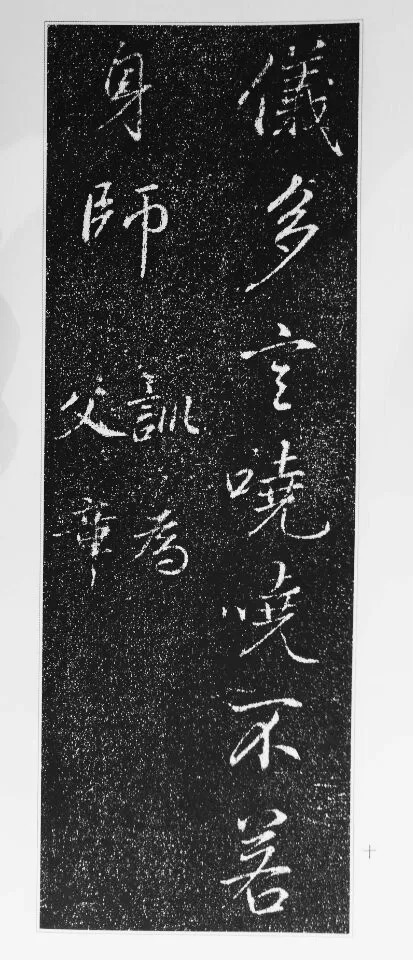 儀多言嘵嘵不若
身師
訓為
父章